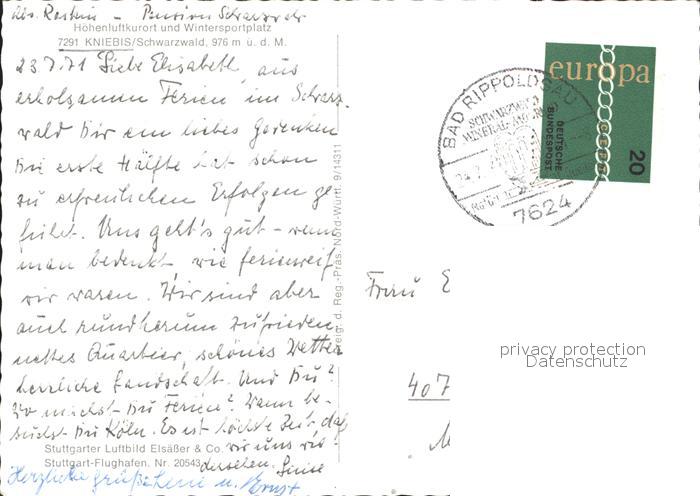 Abs. Rastern - Pension Schwarzwald
Höhenluftkurort und Wintersportplatz
7291 KNIEBIS/Schwarzwald, 976 m ü. d. M.
23.7.71 Liebe Elisabeth, aus
erholsamen Ferien im Schwarz-
wald Dir ein liebes Gedenken
Die erste Hälfte hat schon
zu erfreulichen Erfolgen ge-
führt. Uns geht's gut - wenn
man bedenkt wie ferienreif
wir waren. Wir sind aber
auch rundherum zufrieden,
nettes Quartier, schönes Wetter
herrliche Landschaft. Und Du?
Wo machst Du Ferien? Wann be-
suchst Du Köln. Es ist höchste Zeit, daß
wir uns
Stuttgarter Luftbild Elsäßer & Co.
Stuttgart-Flughafen. Nr. 20543
Herzliche Grüße u. Ernst
Reg.-Präs. Nord-Württ. 9/14311
europa
DEUTSCHE BUNDESPOST
20
BAD RIPPOLDSAU
7624
Frau E
407
privacy protection
Datenschutz